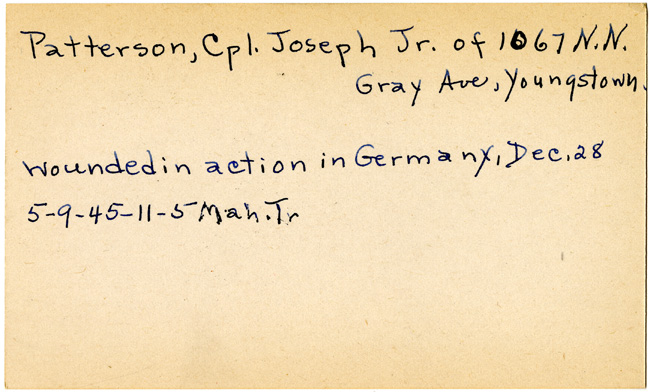 Patterson, Cpl. Joseph Jr. of 1067 N.N.
Gray Ave, Youngstown.
wounded in action in Germany, Dec. 28
5-9-45-11-5 Mah. Tr